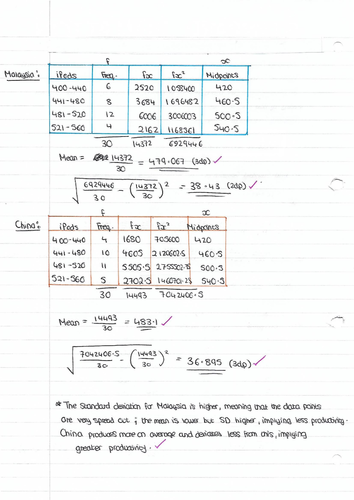 f x
Malaysia: iPads Freq. fx fx² Midpoints
400-440 6 2520 1058400 420
441-480 8 3684 1696482 460.5
481-520 12 6006 3006003 500.5
521-560 4 2162 1168561 540.5
30 14372 6929446
Mean = 14372/30 = 479.067 (3dp) ✓
√ 6929446/30 - (14372/30)² = 38.43 (2dp) ✓
f x
China: iPads Freq. fx fx² Midpoints
400-440 4 1680 705600 420
441-480 10 4605 2120602.5 460.5
481-520 11 5505.5 2755502.75 500.5
521-560 5 2702.5 1460701.25 540.5
30 14493 7042406.5
Mean = 14493/30 = 483.1 ✓
√ 7042406.5/30 - (14493/30)² = 36.895 (3dp) ✓
* The Standard deviation for Malaysia is higher, meaning that the data points
are very spread out ; the mean is lower but SD higher, implying less productivity.
China produces more on average and deviates less from this, implying
greater productivity. ✓